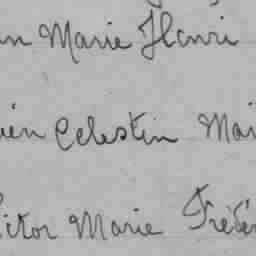 an Marie Henri
ien Celestin Mai
ictor Marie Fréde